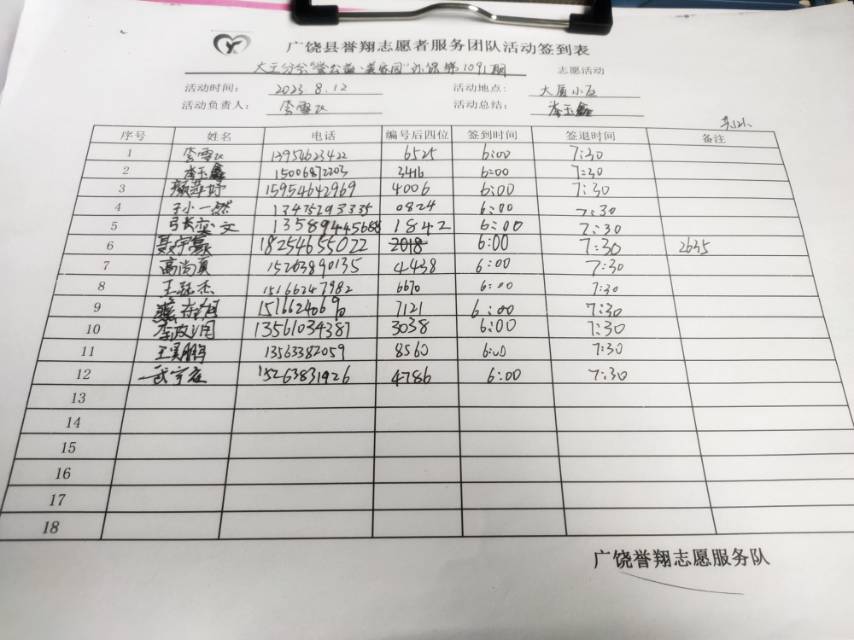 广饶县誉翔志愿者服务团队活动签到表
大王分会"营公益·美家园"第1091期 志愿活动
活动时间: 2023 8.12 活动地点: 大厦小区
活动负责人: 活动总结: 李玉鑫
共12人
序号 姓名 电话 编号后四位 签到时间 签退时间 备注
1 13954623422 6525 6:00 7:30
2 李玉鑫 15006872203 3416 6:00 7:30
3 15954642969 4006 6:00 7:30
4 13475293335 0824 6:00 7:30
5 13589445668 1842 6:00 7:30
6 18254655022 2018 6:00 7:30 2635
7 高尚真 15263890135 4438 6:00 7:30
8 15166247982 6670 6:00 7:30
9 7121 6:00 7:30
10 13561034387 3038 6:00 7:30
11 13563382059 8560 6:00 7:30
12 15263831926 4786 6:00 7:30
13
14
15
16
17
18
广饶誉翔志愿服务队